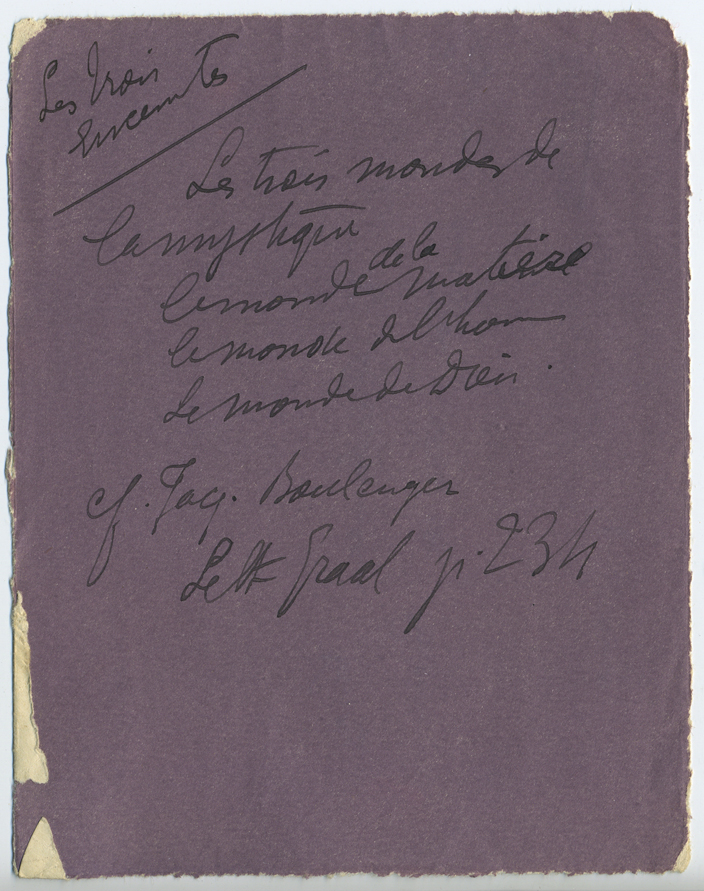 Les trois
Enceintes
Les trois mondes de
la mystique
le monde de la matière
le monde de l'hom
Le monde de Dieu.
cf. Jacq. Boulenger
Le St Graal p. 234